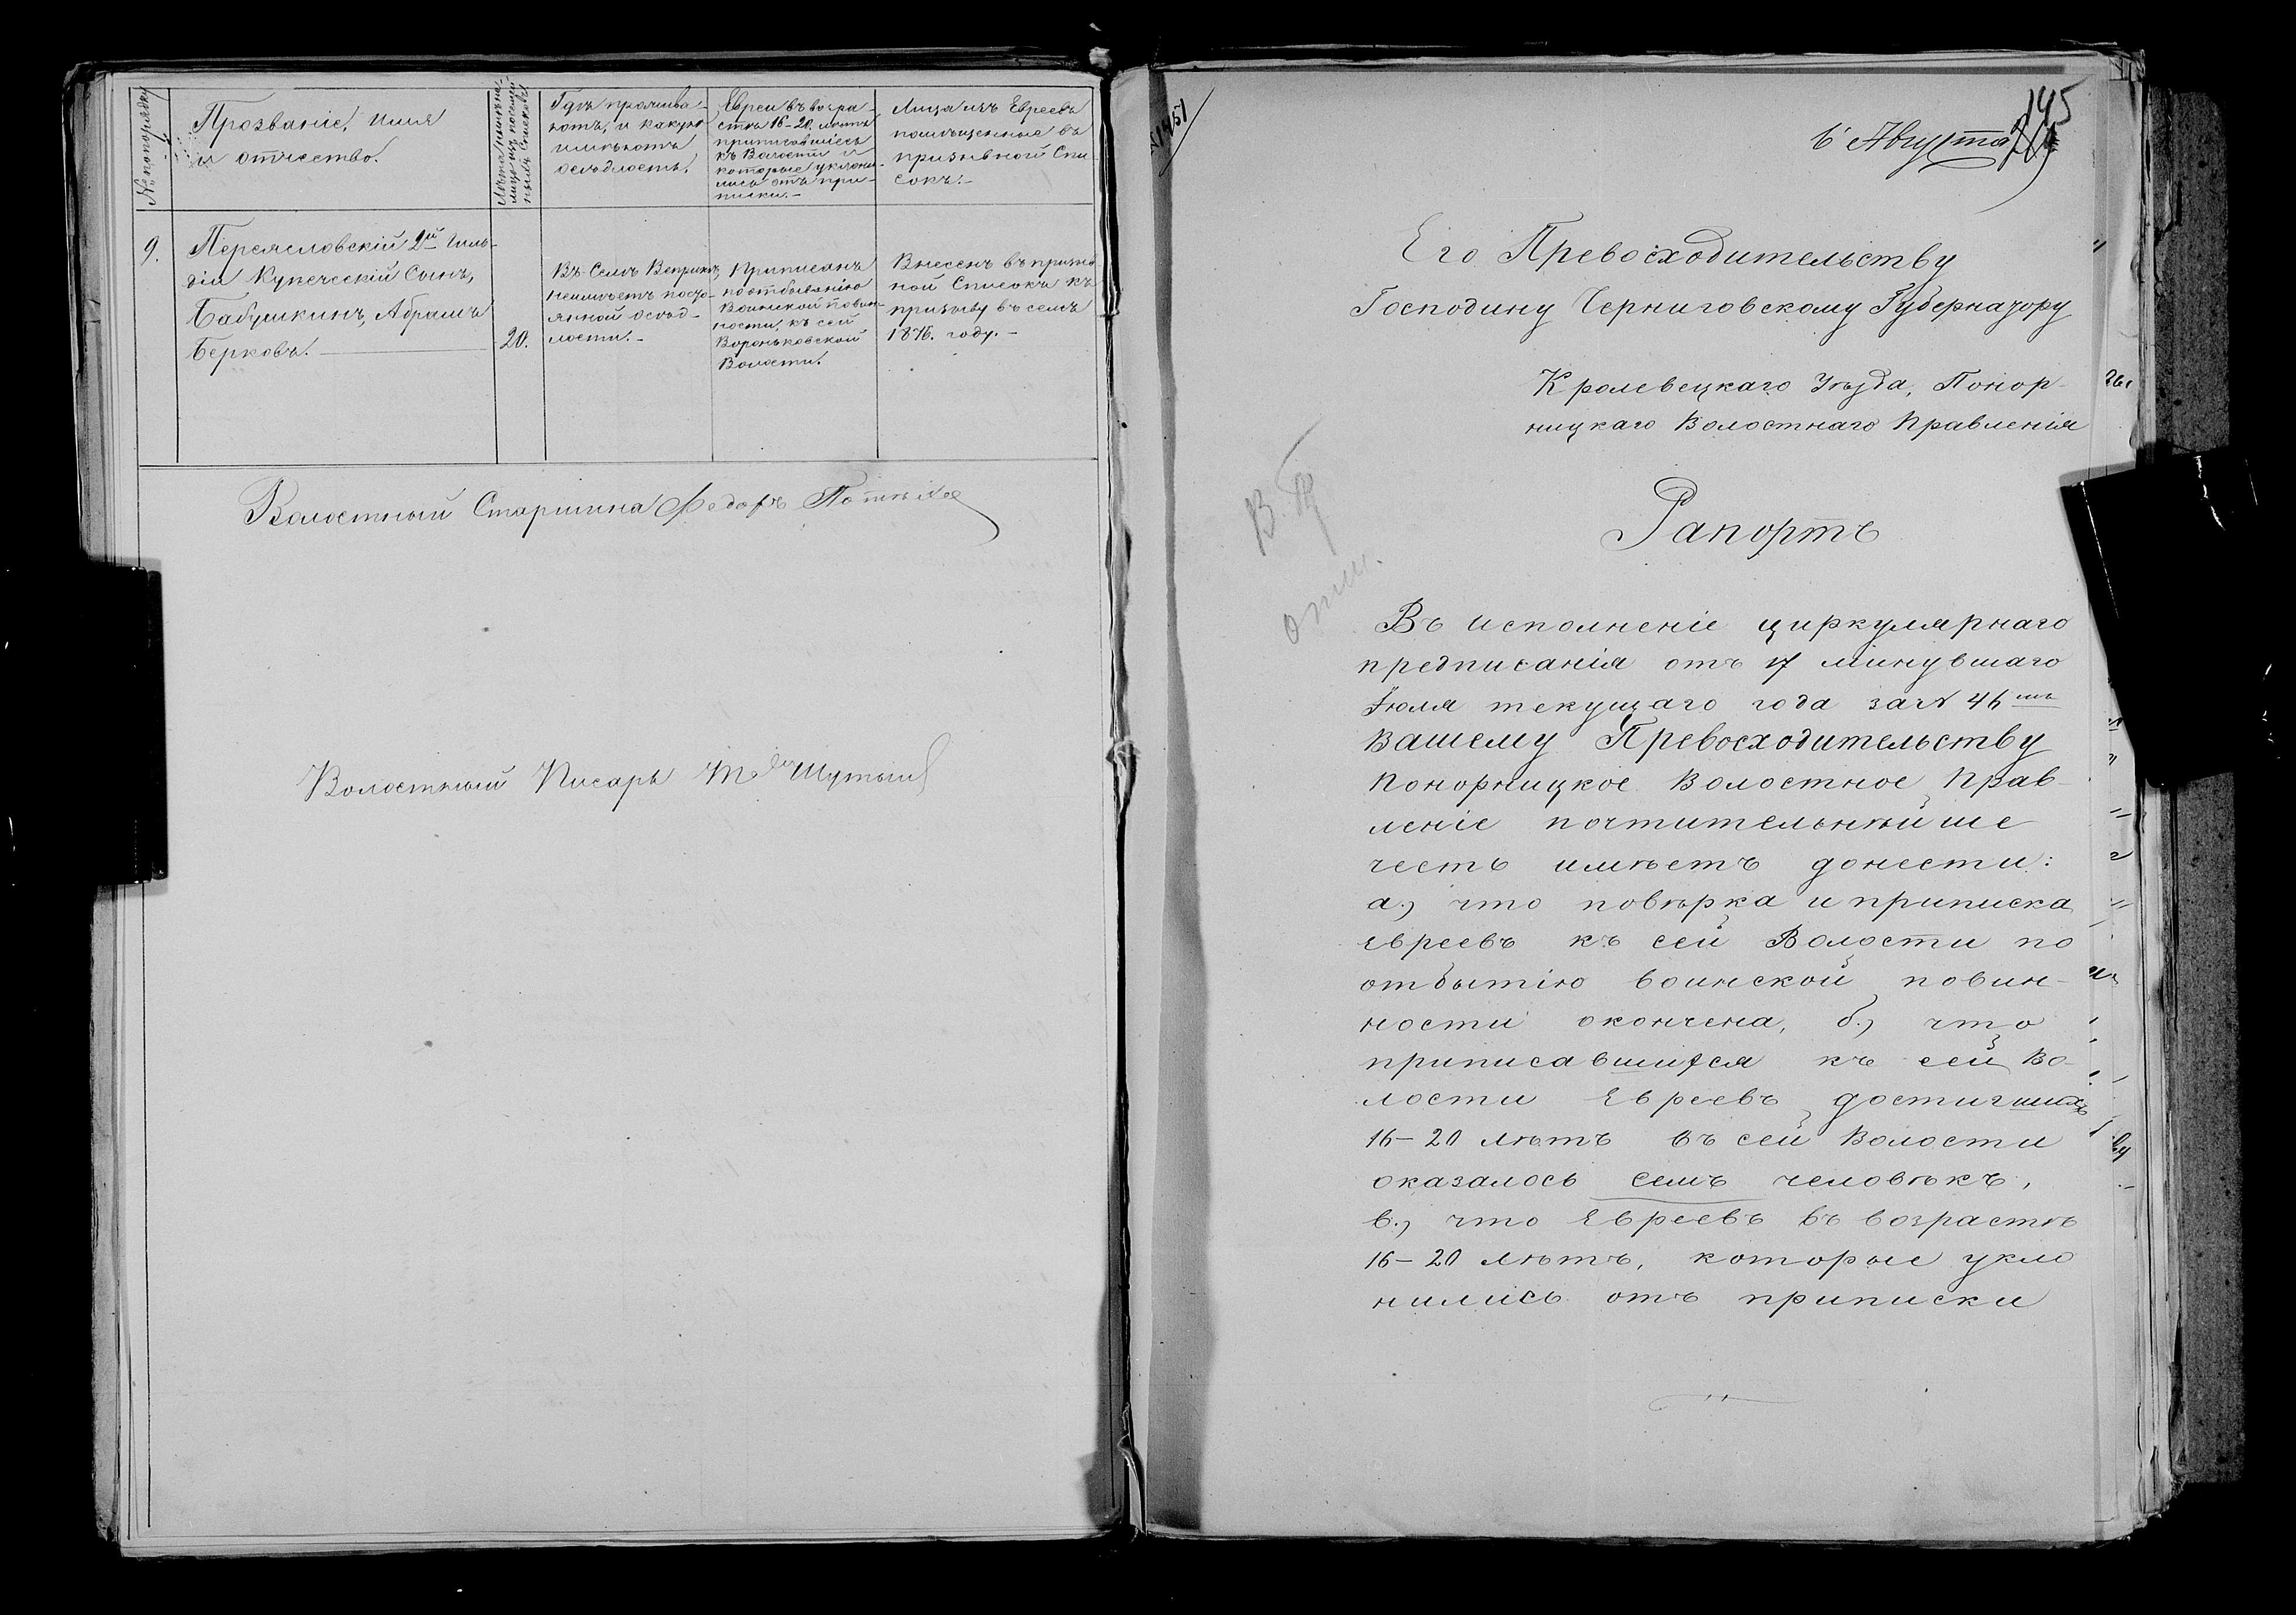 № по порядку
Прозваніе, имя
и отчество.
Лѣта
Гдѣ прожива-
ютъ, и какую
имѣютъ
осѣдлость.
Евреи въ возра-
стѣ 16-20. лѣтъ
приписавшіесь
къ Волости и
которые уклони-
лись отъ при-
писки.-
Лица изъ Евреевъ
помѣщенные въ
призывной Спи-
сокъ.-
9.
Переясловскій 2й Гиль-
діи Купеческій Сынъ,
Бабушкинъ, Абрамъ
Берковъ.
20.
Въ Селѣ Веприкѣ,
неимѣетъ посто-
янной осѣд-
лости.-
Приписанъ
по отбыванію
Воинской повин-
ности, къ сей
Вороньковской
Волости.
Внесенъ въ призыв
ной Списокъ къ
призыву въ семъ
1876. году.-
Волостный Старшина Федоръ
Волостный Писарь
145
6 Августа
Его Превосходительству
Господину Черниговскому Губернатору
Кролевецкаго Уѣзда, Понор-
ницкаго Волостнаго Правленія
Рапортъ
Въ исполненіе циркулярнаго
предписанія отъ 17 минувшаго
Іюля текущаго года за № 46мъ
Вашему Превосходительству
Понорницкое Волостное Прав-
леніе почтительнѣйше
честь имѣетъ донести:
а.) что повѣрка и приписка
Евреевъ къ сей Волости по
отбытію воинской повин-
ности окончена, б.) что
приписавшихся къ сей Во-
лости Евреевъ достигшихъ
16-20 лѣтъ въ сей Волости
оказалось семь человѣкъ,
в.) что Евреевъ въ возрастѣ
16-20 лѣтъ, которые укло
нились отъ приписки